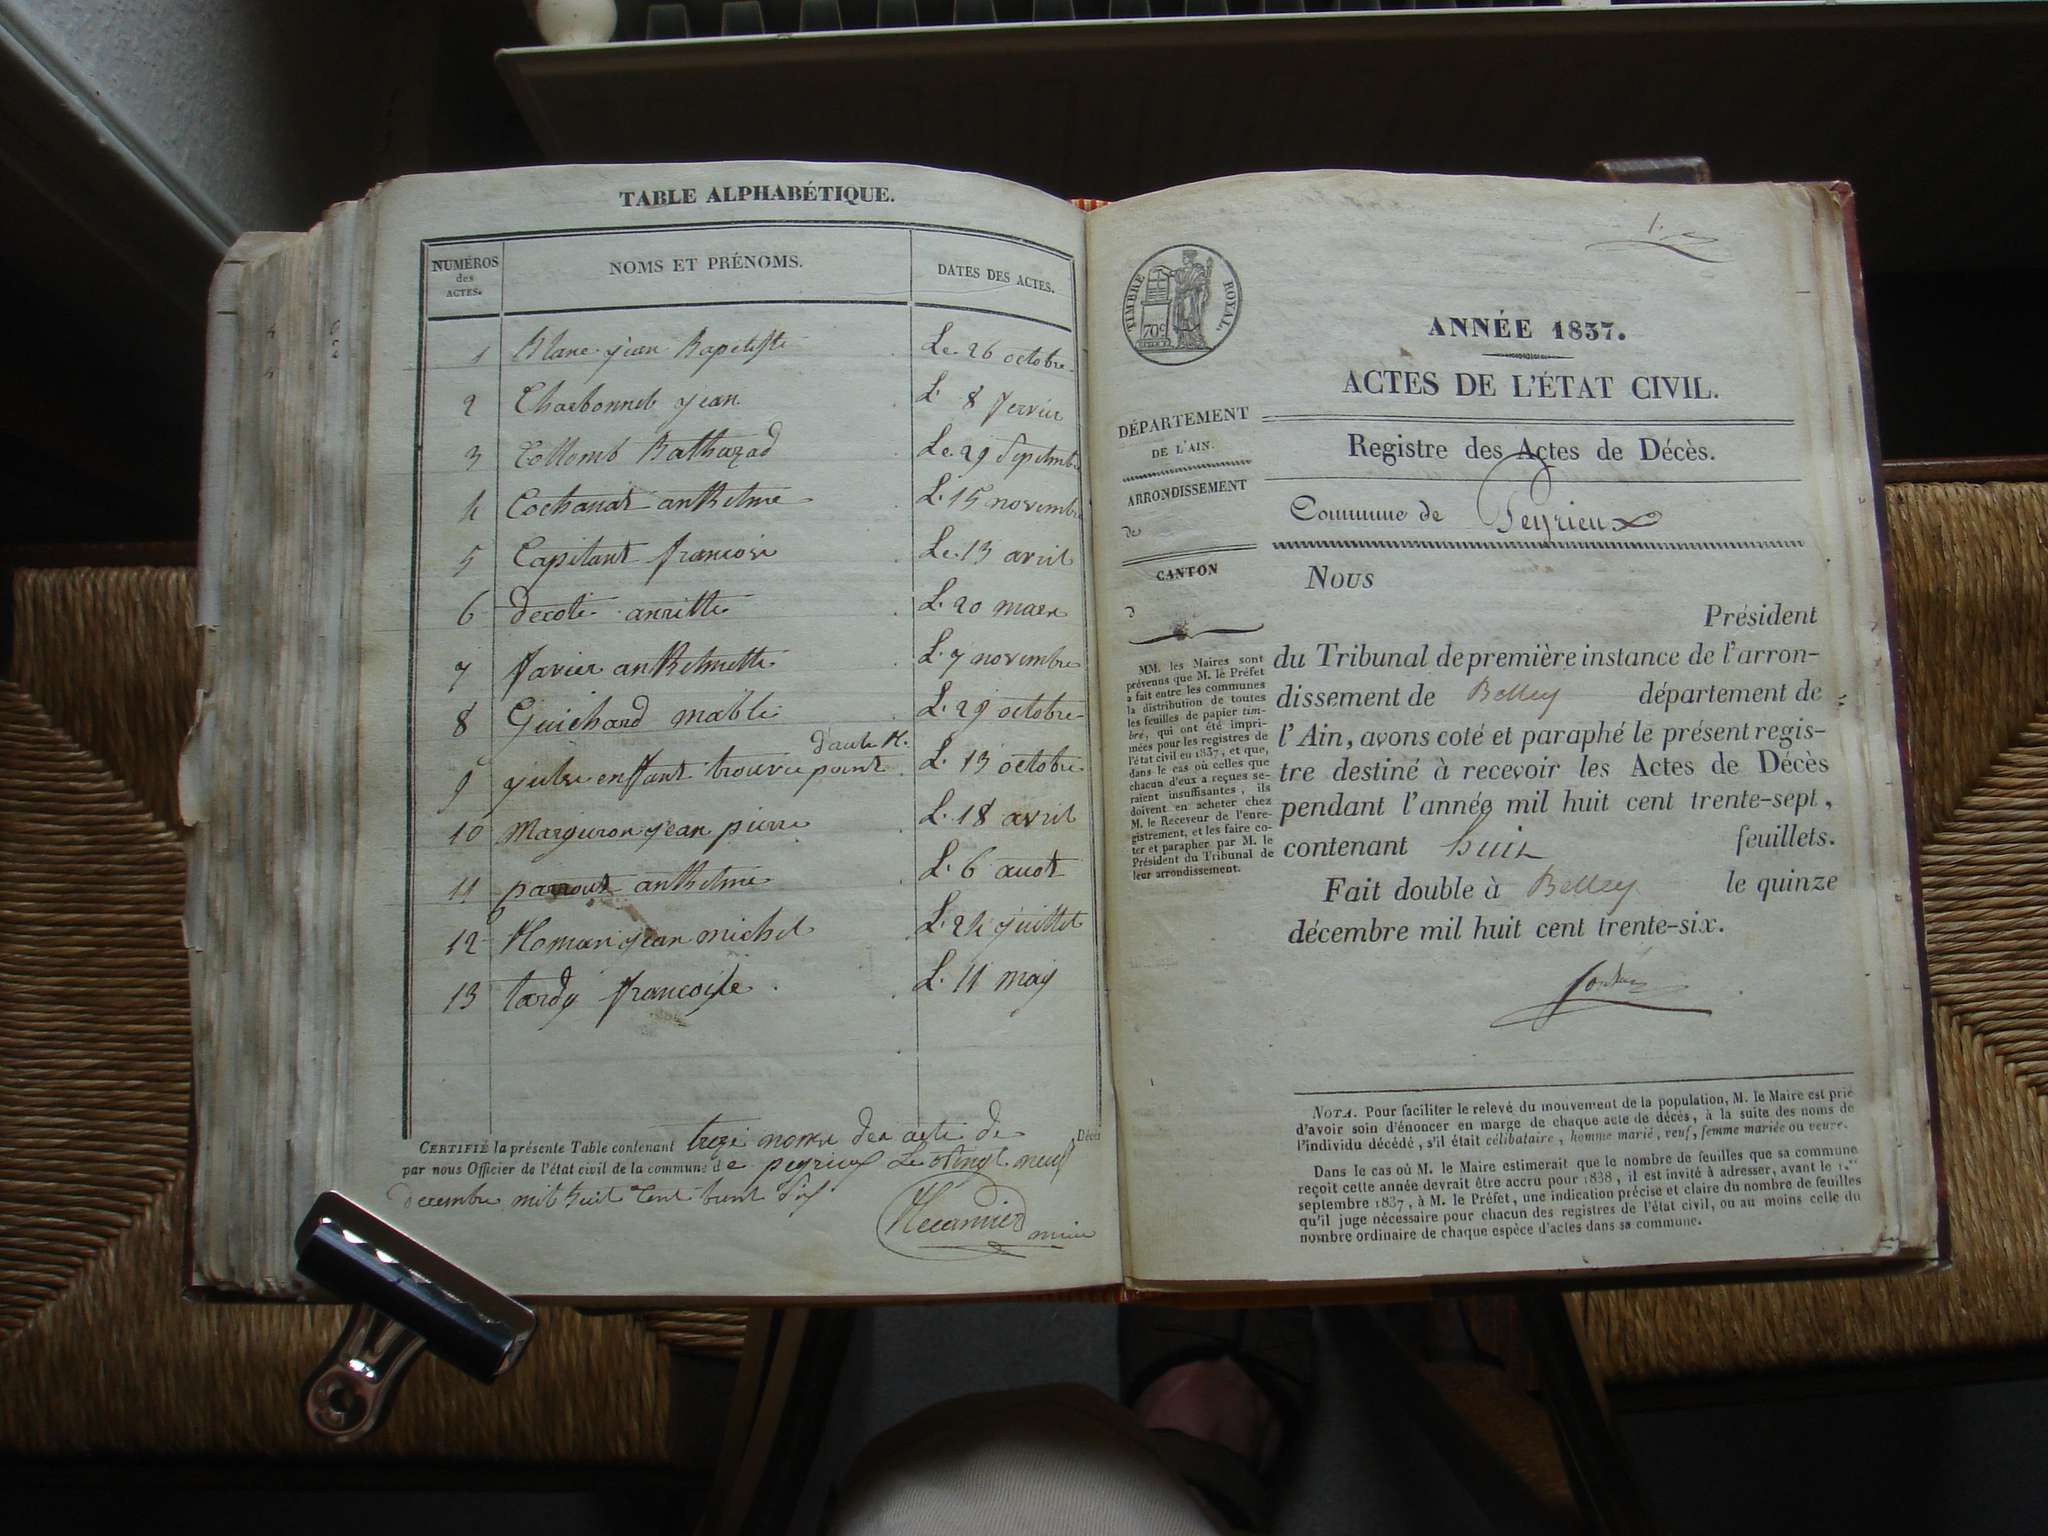 TABLE ALPHABÉTIQUE.
NUMÉROS des ACTES.
NOMS ET PRÉNOMS.
DATES DES ACTES.
1 Blanc jean Baptiste Le 26 octobre
2 Charbonnet jean L. 8 fevrier
3 Collomb Balthazad Le 29 Septembre
4 Cochanat anthelme L. 15 novembre
5 Capitant francoise Le 13 avril
6 decoti anritte L. 20 mars
7 favier anthelmette L. 7 novembre
8 Guichard mable L. 29 octobre
9 enffant trouvee point L. 13 octobre
10 Marguron jean pierre L. 18 avril
11 anthelme L. 6 auot
12 Roman jean michel L. 24 juillet
13 tardy francoise L. 11 may
CERTIFIÉ la présente Table contenant treze noms des acte de Décès
par nous Officier de l'état civil de la commune de peyrieux Le vingt neuf
decembre mil huit cent trent Six
1.
TIMBRE ROYAL.
70c
ANNÉE 1837.
ACTES DE L'ÉTAT CIVIL.
DÉPARTEMENT
DE L'AIN.
ARRONDISSEMENT
de
CANTON
d
Registre des Actes de Décès.
Commune de Peyrieux
MM. les Maires sont
prévenus que M. le Préfet
a fait entre les communes
la distribution de toutes
les feuilles de papier tim-
bré, qui ont été impri-
mées pour les registres de
l'état civil en 1837, et que,
dans le cas où celles que
chacun d'eux a reçues se-
raient insuffisantes, ils
doivent en acheter chez
M. le Receveur de l'enre-
gistrement, et les faire co-
ter et parapher par M. le
Président du Tribunal de
leur arrondissement.
NOUS
Président
du Tribunal de première instance de l'arron-
dissement de Belley département de
l'Ain, avons coté et paraphé le présent regis-
tre destiné à recevoir les Actes de Décès
pendant l'année mil huit cent trente-sept,
contenant huit feuillets.
Fait double à Belley le quinze
décembre mil huit cent trente-six.
NOTA. Pour faciliter le relevé du mouvement de la population, M. le Maire est prié
d'avoir soin d'énoncer en marge de chaque acte de décès, à la suite des noms de
l'individu décédé, s'il était célibataire, homme marié, veuf, femme mariée ou veuve.
Dans le cas où M. le Maire estimerait que le nombre de feuilles que sa commune
reçoit cette année devrait être accru pour 1838, il est invité à adresser, avant le 1.er
septembre 1837, à M. le Préfet, une indication précise et claire du nombre de feuilles
qu'il juge nécessaire pour chacun des registres de l'état civil, ou au moins celle du
nombre ordinaire de chaque espèce d'actes dans sa commune.